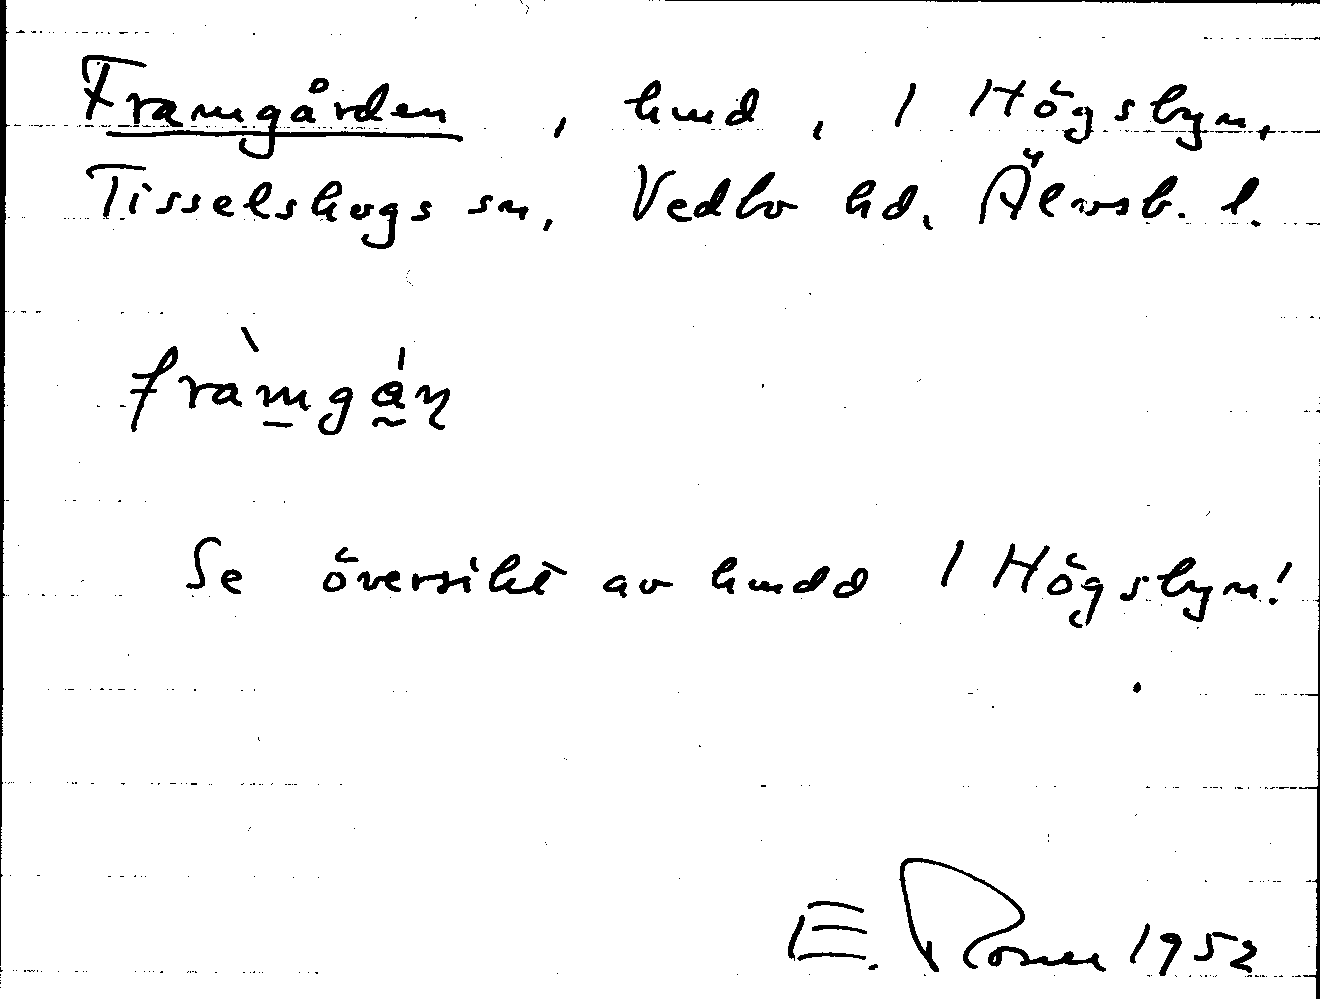 Framgården, hmd, 1 Högsbyn,
Tisselskogs sn, Vedbo hd. Älvsb. l.
fràmgán
Se översikt av hmdd 1 Högsbyn!
E. 1952